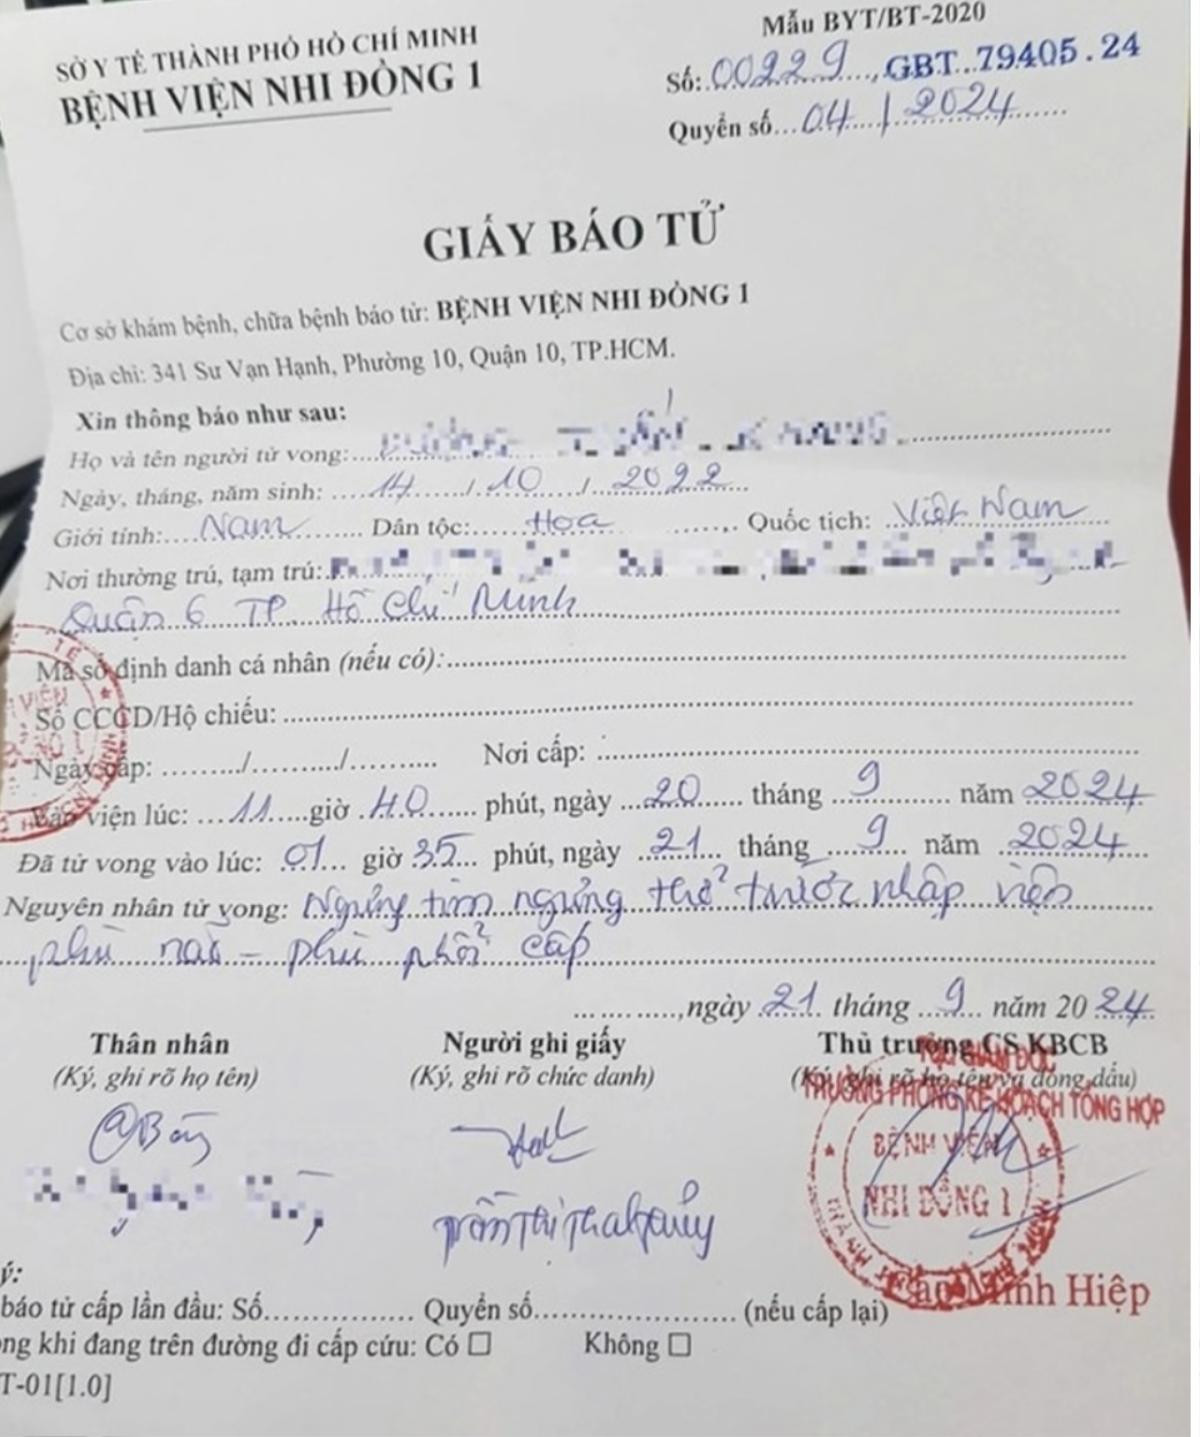 SỞ Y TẾ THÀNH PHỐ HỒ CHÍ MINH
BỆNH VIỆN NHI ĐỒNG 1
Mẫu BYT/BT-2020
Số: 00229, GBT. 79405.24
Quyển số...04 / 2024
GIẤY BÁO TỬ
Cơ sở khám bệnh, chữa bệnh báo tử: BỆNH VIỆN NHI ĐỒNG 1
Địa chỉ: 341 Sư Vạn Hạnh, Phường 10, Quận 10, TP.HCM.
Xin thông báo như sau:
Họ và tên người tử vong:
Ngày, tháng, năm sinh: 14 / 10 / 2022
Giới tính: Nam Dân tộc: Hoa Quốc tịch: Việt Nam
Nơi thường trú, tạm trú:
Quận 6 TP. Hồ Chí Minh
Mã số định danh cá nhân (nếu có):
Số CCCD/Hộ chiếu:
Ngày cấp: ......../........./......... Nơi cấp:
viện lúc: 11 giờ 40 phút, ngày 20 tháng 9 năm 2024
Đã tử vong vào lúc: 01 giờ 35 phút, ngày 21 tháng 9 năm 2024
Nguyên nhân tử vong: Ngưng tim ngưng thở trước nhập viện
phù não - phù phổi cấp
........., ngày 21 tháng 9 năm 2024
Thân nhân Người ghi giấy Thủ trưởng CS KBCB
(Ký, ghi rõ họ tên) (Ký, ghi rõ chức danh) (Ký, ghi rõ họ tên và đóng dấu)
TRƯỞNG PHÒNG KẾ HOẠCH TỔNG HỢP
BỆNH VIỆN
NHI ĐỒNG 1
Trần Thị Thanh Thủy
Minh Hiệp
ý:
báo tử cấp lần đầu: Số................ Quyển số..................... (nếu cấp lại)
ong khi đang trên đường đi cấp cứu: Có ☐ Không ☐
T-01[1.0]